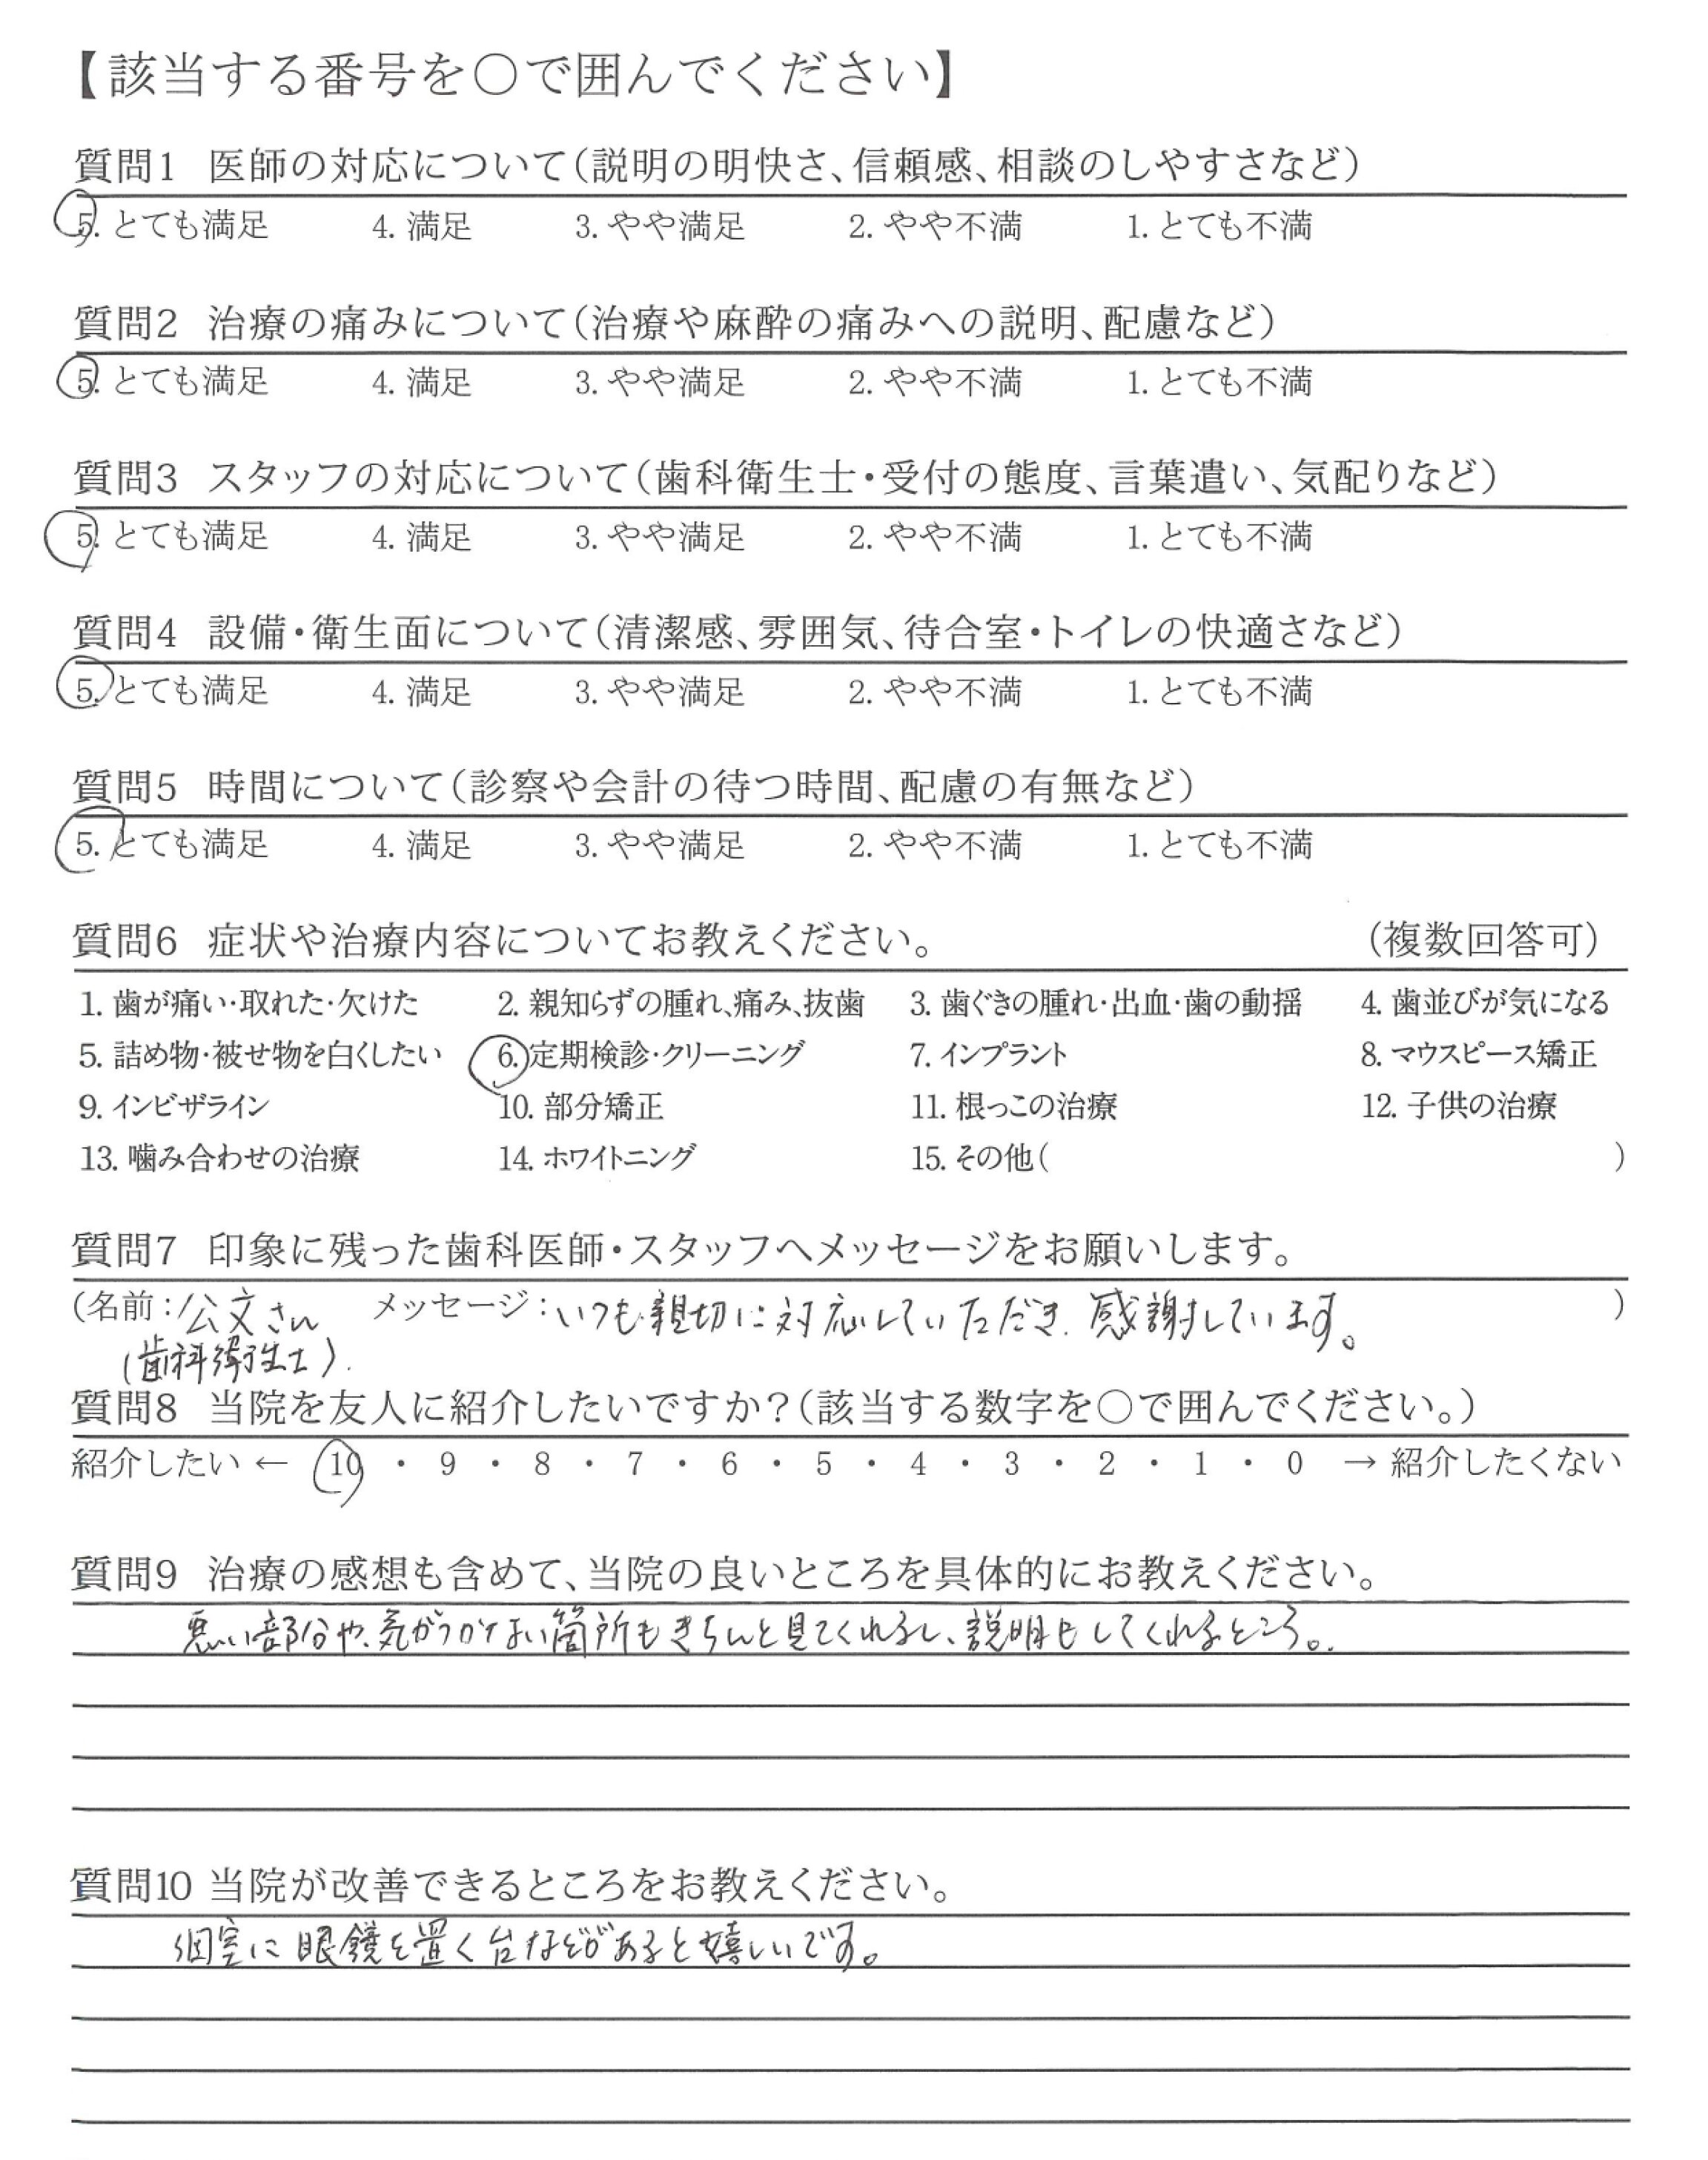 【該当する番号を○で囲んでください】
質問1 医師の対応について(説明の明快さ、信頼感、相談のしやすさなど)
5. とても満足 4. 満足 3. やや満足 2. やや不満 1. とても不満
質問2 治療の痛みについて(治療や麻酔の痛みへの説明、配慮など)
5. とても満足 4. 満足 3. やや満足 2. やや不満 1. とても不満
質問3 スタッフの対応について(歯科衛生士・受付の態度、言葉遣い、気配りなど)
5. とても満足 4. 満足 3. やや満足 2. やや不満 1. とても不満
質問4 設備・衛生面について(清潔感、雰囲気、待合室・トイレの快適さなど)
5. とても満足 4. 満足 3. やや満足 2. やや不満 1. とても不満
質問5 時間について(診察や会計の待つ時間、配慮の有無など)
5. とても満足 4. 満足 3. やや満足 2. やや不満 1. とても不満
質問6 症状や治療内容についてお教えください。 (複数回答可)
1. 歯が痛い・取れた・欠けた 2. 親知らずの腫れ、痛み、抜歯 3. 歯ぐきの腫れ・出血・歯の動揺 4. 歯並びが気になる
5. 詰め物・被せ物を白くしたい 6. 定期検診・クリーニング 7. インプラント 8. マウスピース矯正
9. インビザライン 10. 部分矯正 11. 根っこの治療 12. 子供の治療
13. 噛み合わせの治療 14. ホワイトニング 15. その他( )
質問7 印象に残った歯科医師・スタッフへメッセージをお願いします。
(名前:公文さん メッセージ:いつも親切に対応していただき、感謝しています。 )
(歯科衛生士).
質問8 当院を友人に紹介したいですか?(該当する数字を○で囲んでください。)
紹介したい ← 10 ・ 9 ・ 8 ・ 7 ・ 6 ・ 5 ・ 4 ・ 3 ・ 2 ・ 1 ・ 0 → 紹介したくない
質問9 治療の感想も含めて、当院の良いところを具体的にお教えください。
悪い部分や、気がつかない箇所もきちんと見てくれるし、説明もしてくれるところ。
質問10 当院が改善できるところをお教えください。
個室に眼鏡を置く台などがあると嬉しいです。